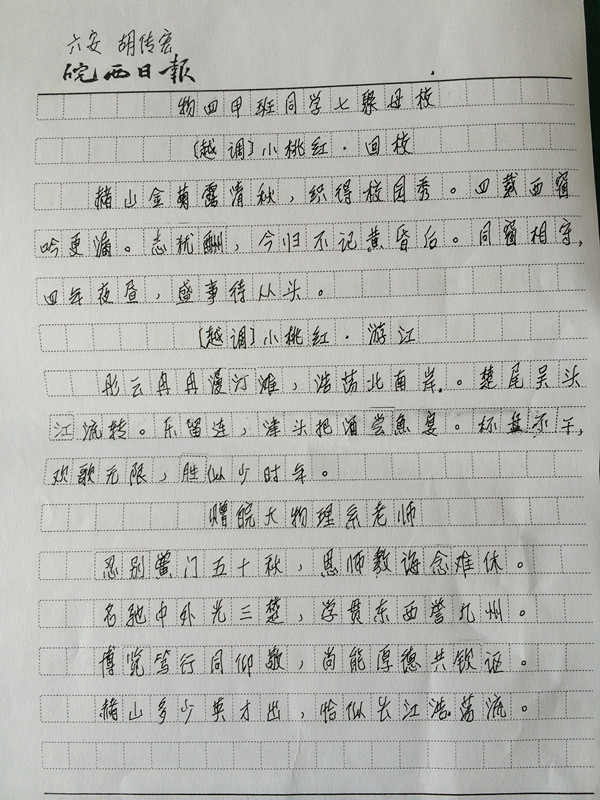 六安 胡传宏
皖西日报
物四甲班同学七聚母校
〔越调〕小桃红·回校
赭山金菊露清秋,织得校园秀。四载西窗
吟更漏。志犹酬,今归不记黄昏后。同窗相守,
四年夜昼,盛事待从头。
〔越调〕小桃红·游江
彤云冉冉漫汀滩,浩荡北南岸。楚尾吴头
江流转。乐留连,津头把酒尝鱼宴。杯盘不干,
欢歌无限,胜似少时年。
赠皖大物理系老师
忍别黉门五十秋,恩师教诲念难休。
名驰中外光三楚,学贯东西誉九州。
博览笃行同仰敬,尚能厚德共钦讴。
赭山多少英才出,恰似长江浩荡流。